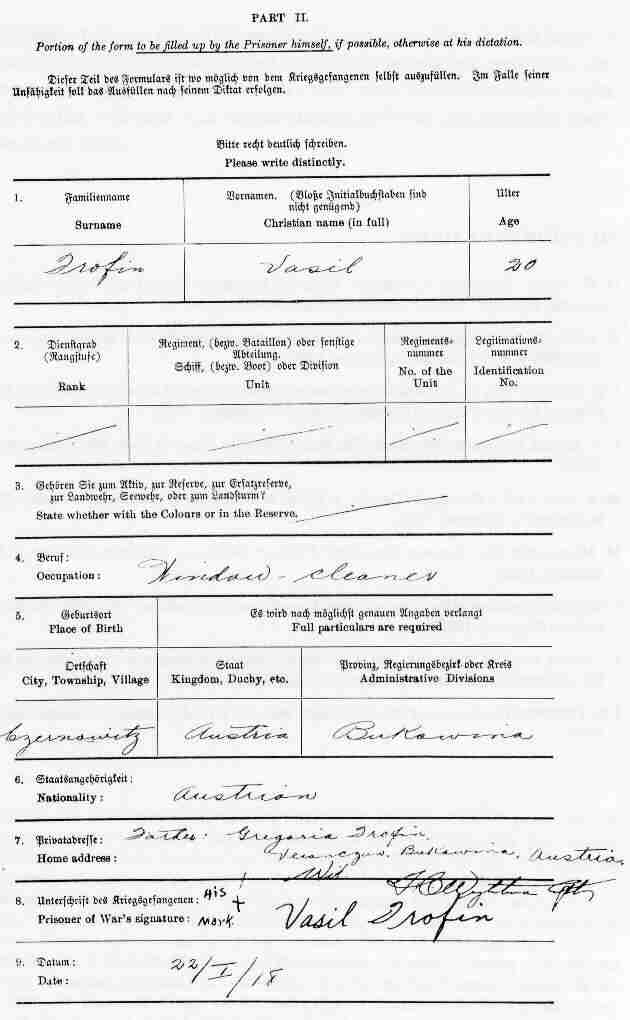 PART II.
Portion of the form to be filled up by the Prisoner himself, if possible, otherwise at his dictation.
Dieser Teil des Formulars ist wo möglich von dem Kriegsgefangenen selbst auszufüllen. Im Falle seiner
Unfähigkeit soll das Ausfüllen nach seinem Diktat erfolgen.
Bitte recht deutlich schreiben.
Please write distinctly.
1. Familienname
Surname
Vornamen. (Bloße Initialbuchstaben sind
nicht genügend)
Christian name (in full)
Alter
Age
Trofin
Vasil
20
2. Dienstgrad
(Rangstufe)
Rank
Regiment, (bezw. Bataillon) oder sonstige
Abteilung.
Schiff, (bezw. Boot) oder Division
Unit
Regiments-
nummer
No. of the
Unit
Legitimations-
nummer
Identification
No.
3. Gehören Sie zum Aktiv, zur Reserve, zur Ersatzreserve,
zur Landwehr, Seewehr, oder zum Landsturm?
State whether with the Colours or in the Reserve.
4. Beruf:
Occupation: Window-cleaner
5. Geburtsort
Place of Birth
Es wird nach möglichst genauen Angaben verlangt
Full particulars are required
Ortschaft
City, Township, Village
Staat
Kingdom, Duchy, etc.
Provinz, Regierungsbezirk oder Kreis
Administrative Divisions
Czernowitz
Austria
Bukowina
6. Staatsangehörigkeit:
Nationality: Austrian
7. Privatadresse: Father: Gregoria Trofin.
Home address: Bukowina, Austria,
Wit
8. Unterschrift des Kriegsgefangenen: His
Prisoner of War's signature: Mark. + Vasil Trofin
9. Datum:
Date: 22/I/18